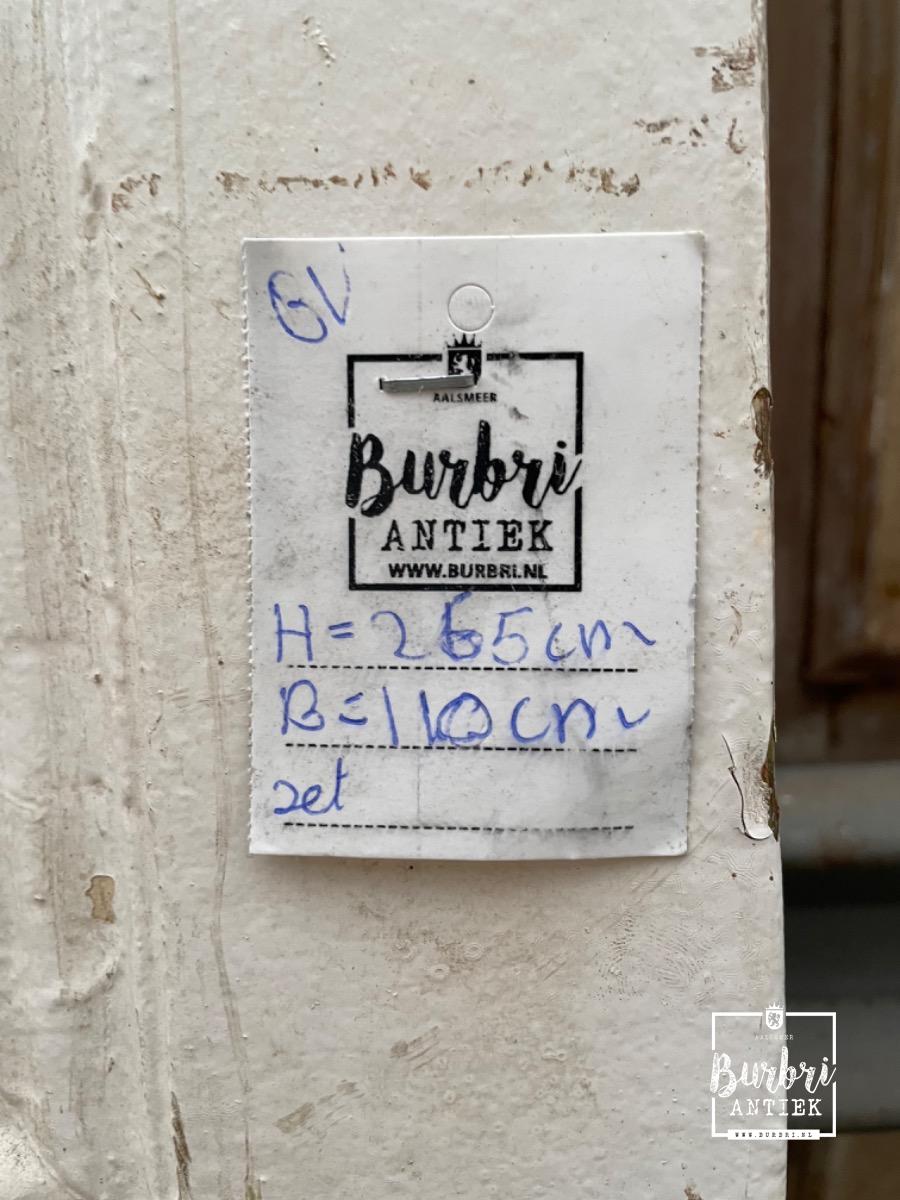 GV
AALSMEER
Burbri
ANTIEK
WWW.BURBRI.NL
H = 265 cm
B = 110 cm
set
AALSMEER
Burbri
ANTIEK
WWW.BURBRI.NL